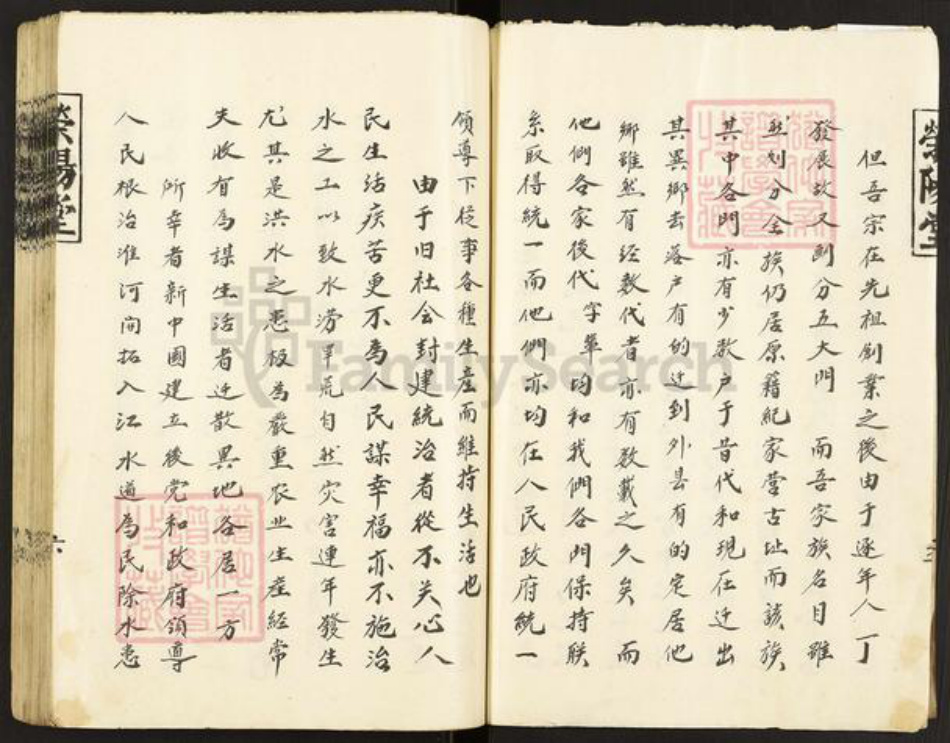 但吾宗在先祖創業之後由于逐年人丁
發展故又劃分五大門 而吾家族名目雖
然划分全族仍居原籍紀家營古址而該族
其中各門亦有少数户于昔代和現在迁出
其異鄉去落户有的迁到外县有的定居他
鄉雖然有经数代者亦有数載之久矣 而
他們各家後代字輩均和我們各門保持联
系取得統一而他們亦均在人民政府統一
領導下從事各種生産而維持生活也
由于旧社会封建統治者從不关心人
民生活疾苦更不為人民謀幸福亦不施治
水之工以致水涝旱荒自然灾害連年發生
尤其是洪水之患极為嚴重农业生産经常
失收有為謀生活者迁散異地各居一方
所幸者新中國建立後党和政府領導
人民根治淮河開拓入江水道為民除水患
榮陽堂
六
FamilySearch